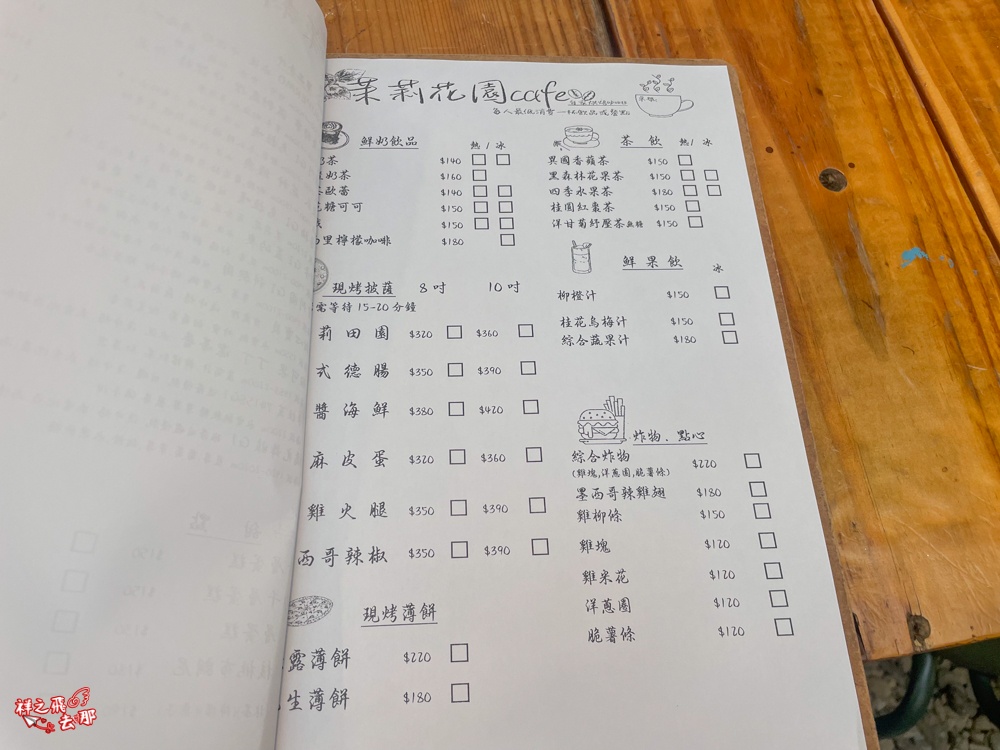 茉莉花園cafe
每人最低消費一杯飲品或餐點
鮮奶飲品 熱/冰
奶茶 $140
奶茶 $160
歐蕾 $140
糖可可 $150
$150
里檸檬咖啡 $180
現烤披薩 8吋 10吋
需等待 15-20分鐘
莉田園 $320 $360
式德腸 $350 $390
醬海鮮 $380 $420
麻皮蛋 $320 $360
雞火腿 $350 $390
西哥辣椒 $350 $390
現烤薄餅
露薄餅 $220
生薄餅 $180
茶飲 熱/冰
異國香蘋茶 $150
黑森林花果茶 $150
四季水果茶 $180
桂圓紅棗茶 $150
洋甘菊紓壓茶無糖 $150
鮮果飲 冰
柳橙汁 $150
桂花烏梅汁 $150
綜合蔬果汁 $180
炸物、點心
綜合炸物 $220
(雞塊,洋蔥圈,脆薯條)
墨西哥辣雞翅 $180
雞柳條 $150
雞塊 $120
雞米花 $120
洋蔥圈 $120
脆薯條 $120
祥之飛
去那